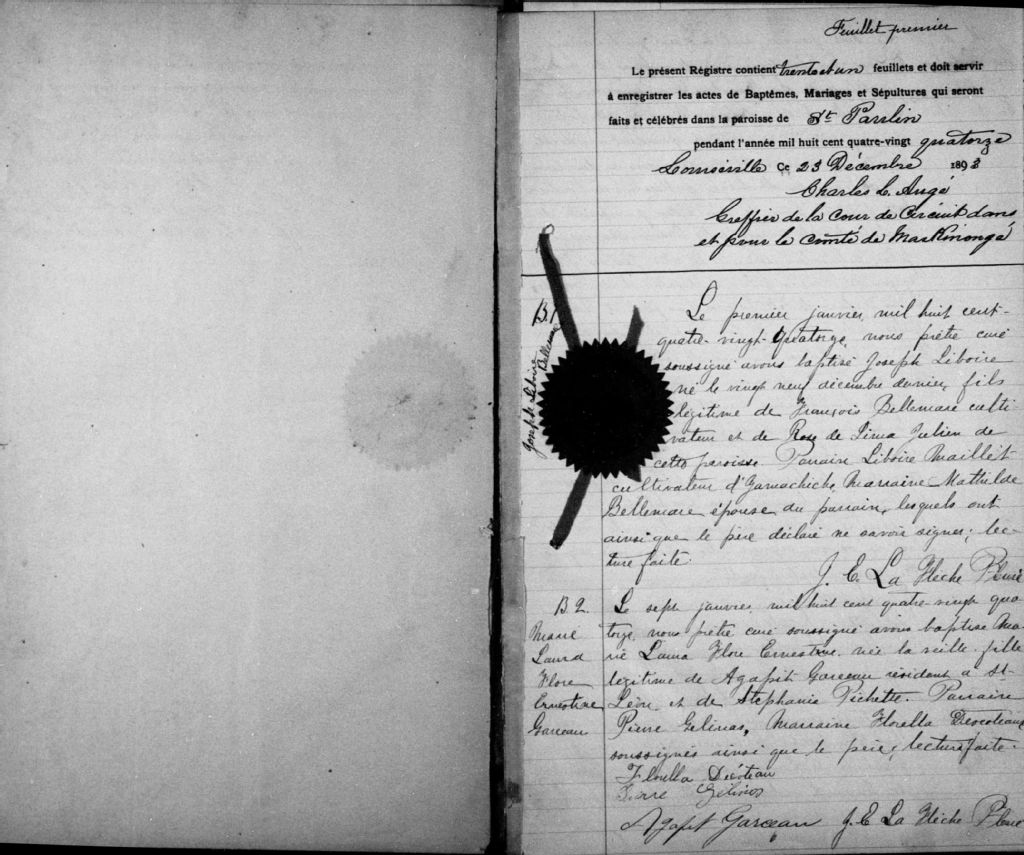 Feuillet premier
Le présent Régistre contient trente et un feuillets et doit servir
à enregistrer les actes de Baptêmes, Mariages et Sépultures qui seront
faits et célébrés dans la paroisse de St. Paulin
pendant l'année mil huit cent quatre-vingt quatorze
Louiseville Ce 23 Décembre 1893
Charles L. Augé
Greffier de la Cour de Circuit dans
et pour le comté de Maskinongé
B1
Joseph Liboire
Bellemare
Le premier janvier mil huit cent-
quatre-vingt-quatorze, nous prêtre curé
soussigné avons baptisé Joseph Liboire
né le vingt neuf décembre dernier, fils
légitime de François Bellemare culti-
vateur et de Rose de Lima Julien de
cette paroisse. Parrain Liboire Maillet
cultivateur d'Yamachiche, Marraine Mathilde
Bellemare épouse du parrain, lesquels ont
ainsi que le père déclaré ne savoir signer; lec-
ture faite.
J. E. La Flèche Ptre curé
B 2.
Marie
Laura
Flore
Ernestine
Garceau
Le sept janvier mil huit cent quatre-vingt qua-
torze, nous prêtre curé soussigné avons baptisé Ma-
rie Laura Flore Ernestine née la veille fille
légitime de Agapit Garceau résident à St-
Léon, et de Stéphanie Pichette. Parrain
Pierre Gelinas, Marraine Florella Decoteau
soussignés ainsi que le père, lecture faite.
Florella Decoteau
Pierre Gélinas
Agapit Garceau J. E. La Flèche Ptre curé